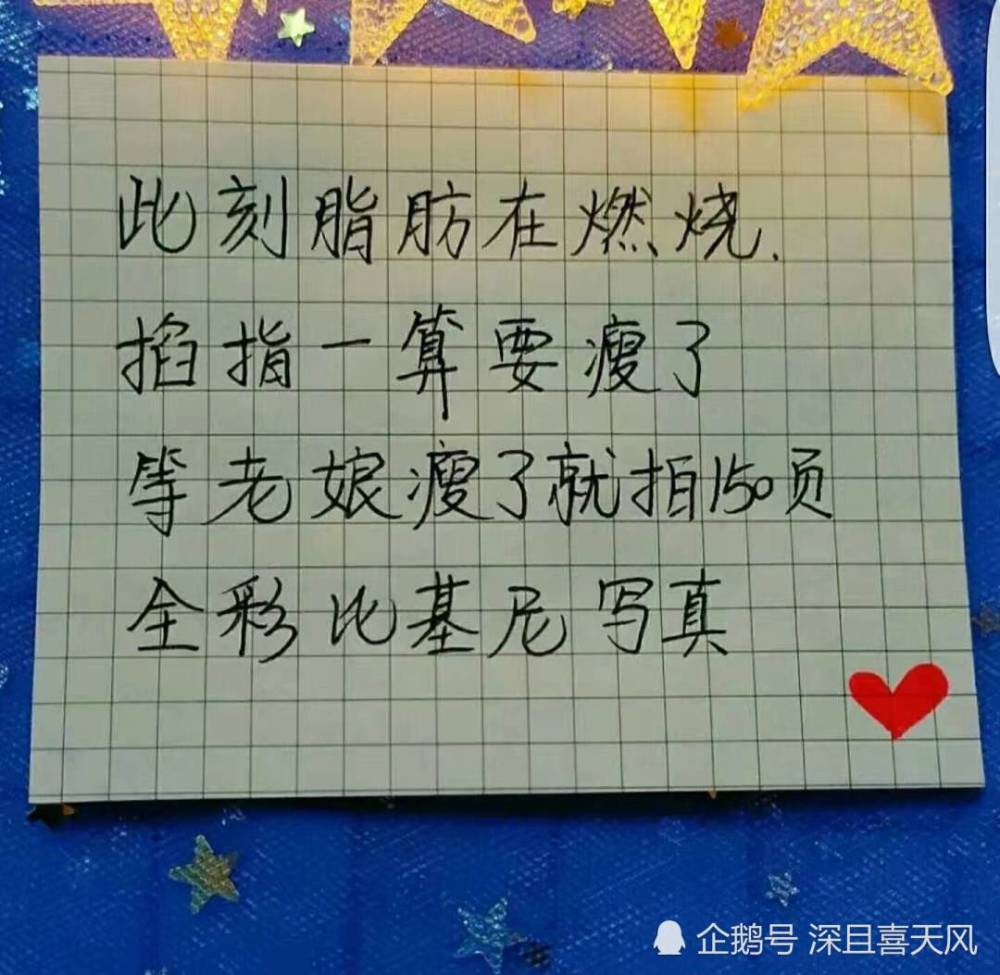 此刻脂肪在燃烧.
掐指一算要瘦了
等老娘瘦了就拍150页
全彩比基尼写真
企鹅号 深且喜天风